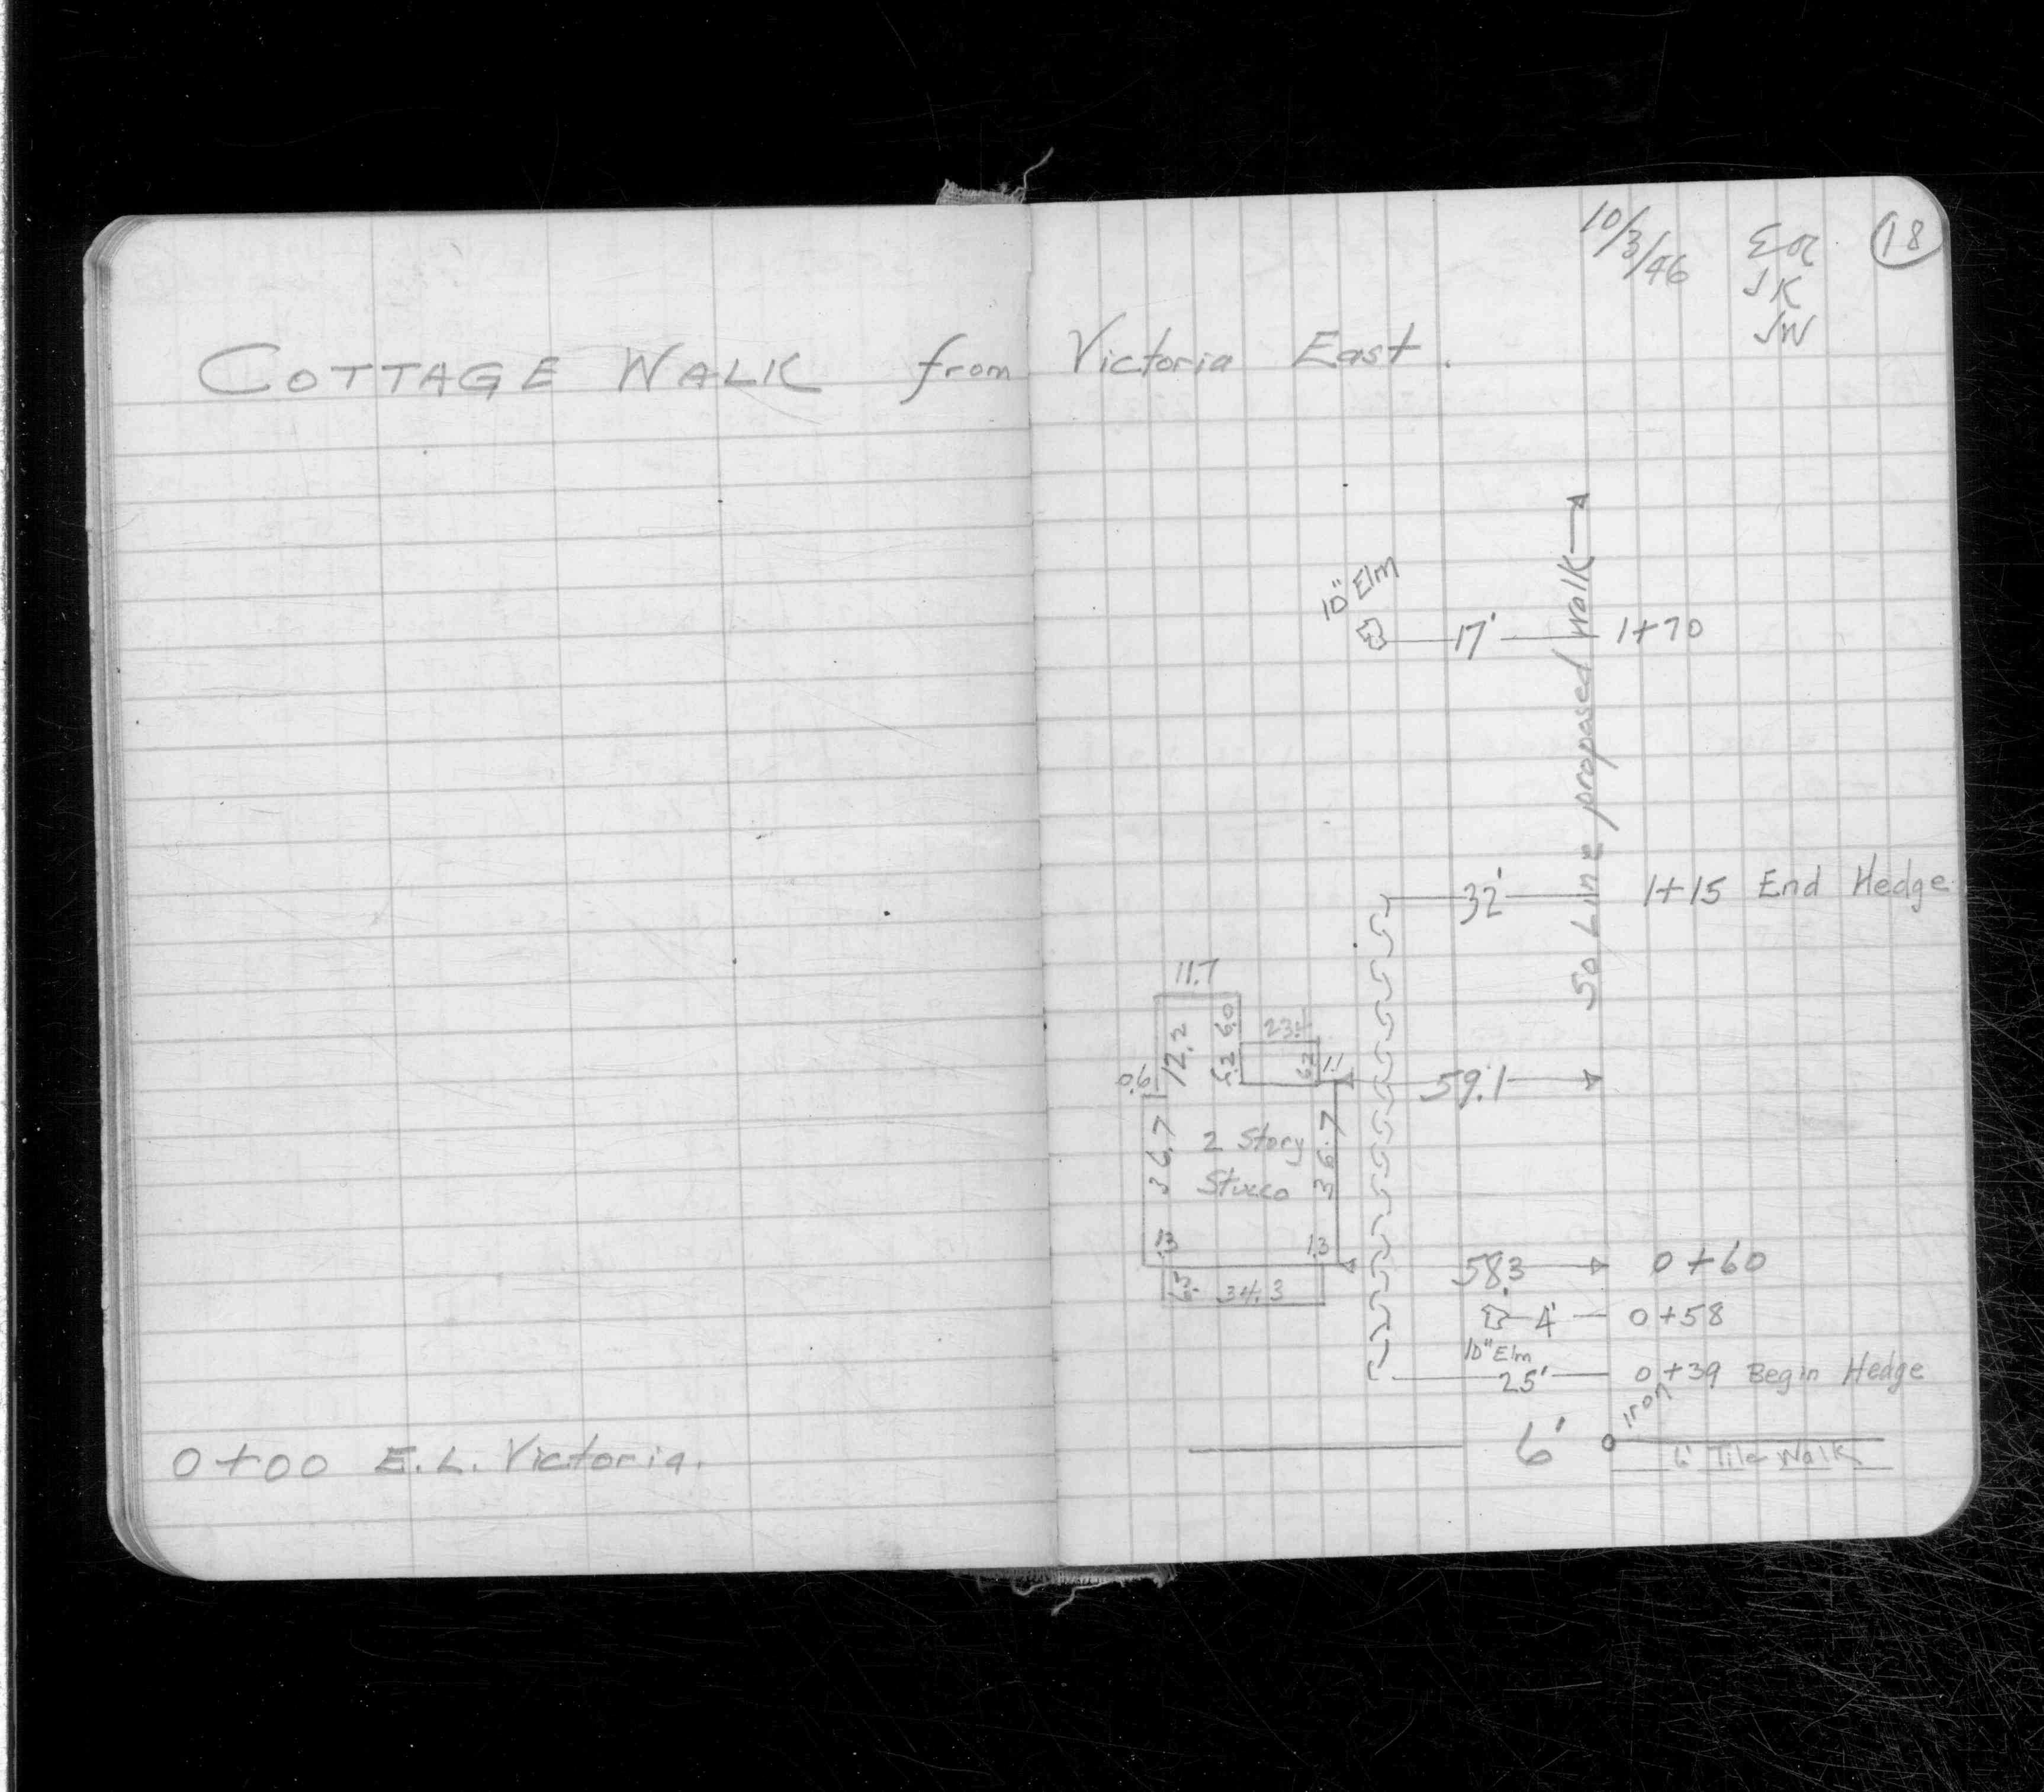 10/3/46
18
JK
JW
COTTAGE WALK from Victoria East.
10" Elm
17' 1+70
So Line proposed Walk
32' 1+15 End Hedge
11.7
12.2 6.0
6.2 6.2 1.1
0.6
59.1
36.7 2 Story 36.7
Stucco
1.3 1.3
58.3 0+60
34.3
4' 0+58
10" Elm
25' 0+39 Begin Hedge
iron
6'
6' Tile Walk
0+00 E.L. Victoria.